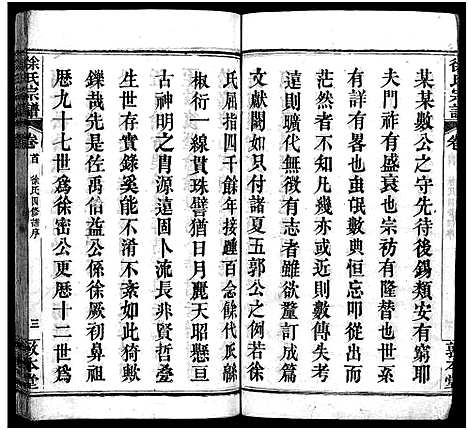 某某數公之守先待後錫類安有窮耶
夫門祚有盛衰也宗祊有隆替也世系
有詳有畧也數典恒忘而文獻無徵
茫然者不知凡幾亦或近則數傳失考
遠則曠代無有志者雖欲釐訂而編摩
文獻闕如只得諸夏五郭公之例若徐
氏屈指四千餘年接踵百餘代瓜緜
椒衍一線貫珠譬猶日月麗天昭懸亘
古神明之胄源遠固卜流長非賢哲叠
生世存實錄奚能不爽毫釐有此譜之
鑠哉先是佐禹伯益公為徐厥初鼻祖
歷九十七世為徐密公更歷十二世為
徐氏宗譜
卷首
徐氏四修譜序
三
敦本堂